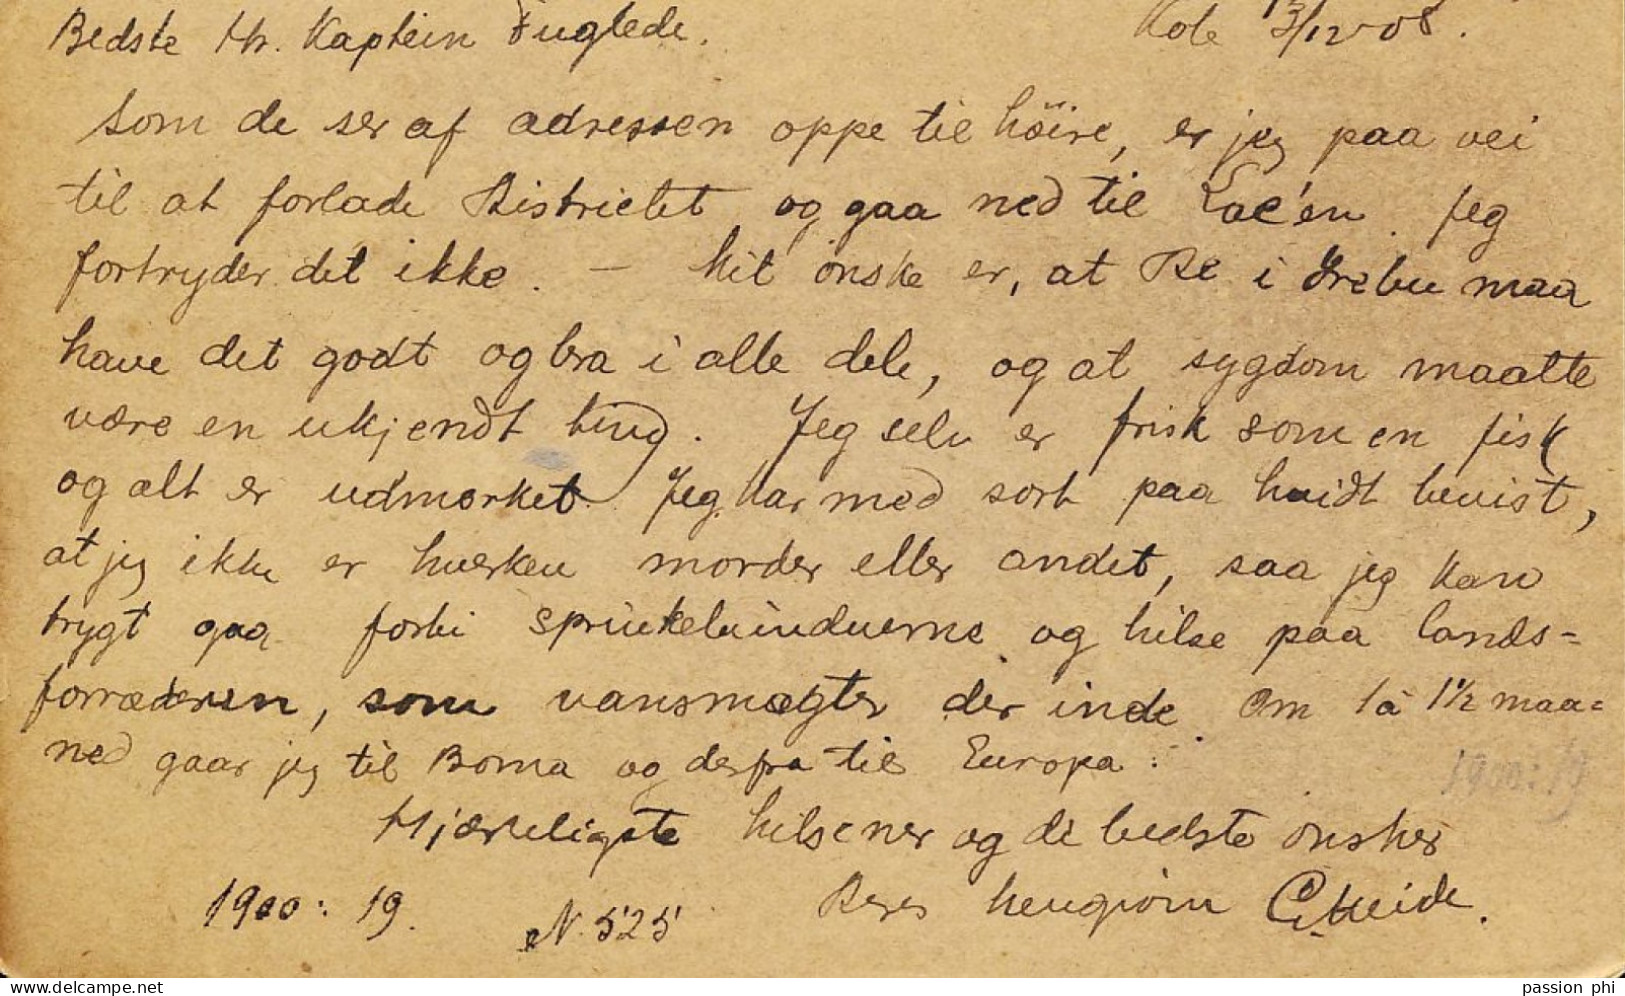 Bedste Hr. Kaptein Fuglede.
Kole 13/12-08.
Som de ser af adressen oppe til höire, er jeg paa vei
til at forlade Districtet og gaa ned til Lac'en. Jeg
fortryder det ikke. — Mit önske er, at De i Irebu maa
have det godt og bra i alle dele, og at sygdom maatte
være en ukjendt ting. Jeg selv er frisk som en fisk
og alt er udmorket. Jeg har med sort paa hvidt bevist,
at jeg ikke er hverken morder eller andet, saa jeg kan
trygt gaa forbi sprinkelvinduerne og hilse paa lands=
forræderen, som vansmægter der inde. Om 1 à 1½ maa=
ned gaar jeg til Boma og derfra til Europa.
Hjærteligste hilsener og de bedste önsker
Deres hengivne
1900: 19
1900: 19.
N. 525
passion phi